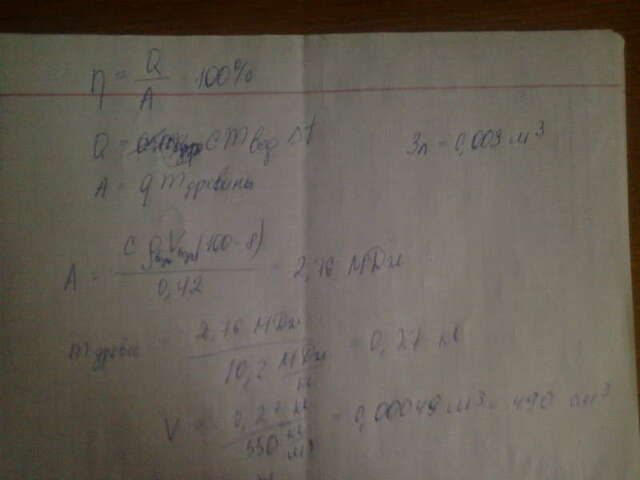 η = Q/A 100%
Q = c m вод Δt
3л = 0,003 м³
A = q m древины
A = c ρводы Vводы (100-8)/0,42 = 2,76 МДж
m древес = 2,76 МДж/10,2 МДж/кг = 0,27 кг
V = 0,27 кг/550 кг/м³ = 0,00049 м³ = 490 см³